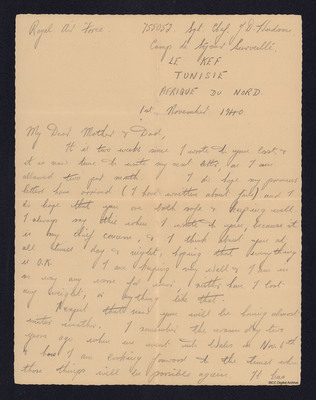 Royal Air Force. 755052 Sgt. Chef. J D Hudson
Camp de Séjour Surveillé
LE KEF
TUNISIE
AFRIQUE DU NORD.
1st. November 1940
My Dear Mother & Dad,
It is two weeks since I wrote to you last, &
it is now time to write my next letter, as I am
allowed two per month. I do hope my previous
letters have arrived (I have written about five) and I
do hope that you are both safe & keeping well.
I always say this when I write to you, because it
is my chief concern, & I think about you at
all times day & night, hoping that everything
is O.K. I am keeping very well & I am in
no way any worse for wear, neither have I lost
any weight, or anything like that.
I expect you will be having almost
winter weather. I remember the warm day two
years ago when we went into Wales on Nov. 6th
& how I am looking forward to the times when
those things will be possible again. It has
IBCC Digital Archive